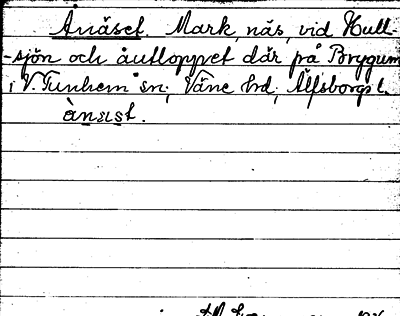 Ånäset. Mark, näs, vid Hult-
-sjön och åutloppvet där på Brygum
i V. Tunhem sn; Väne hd; Älfsborgs l.
ànäst.